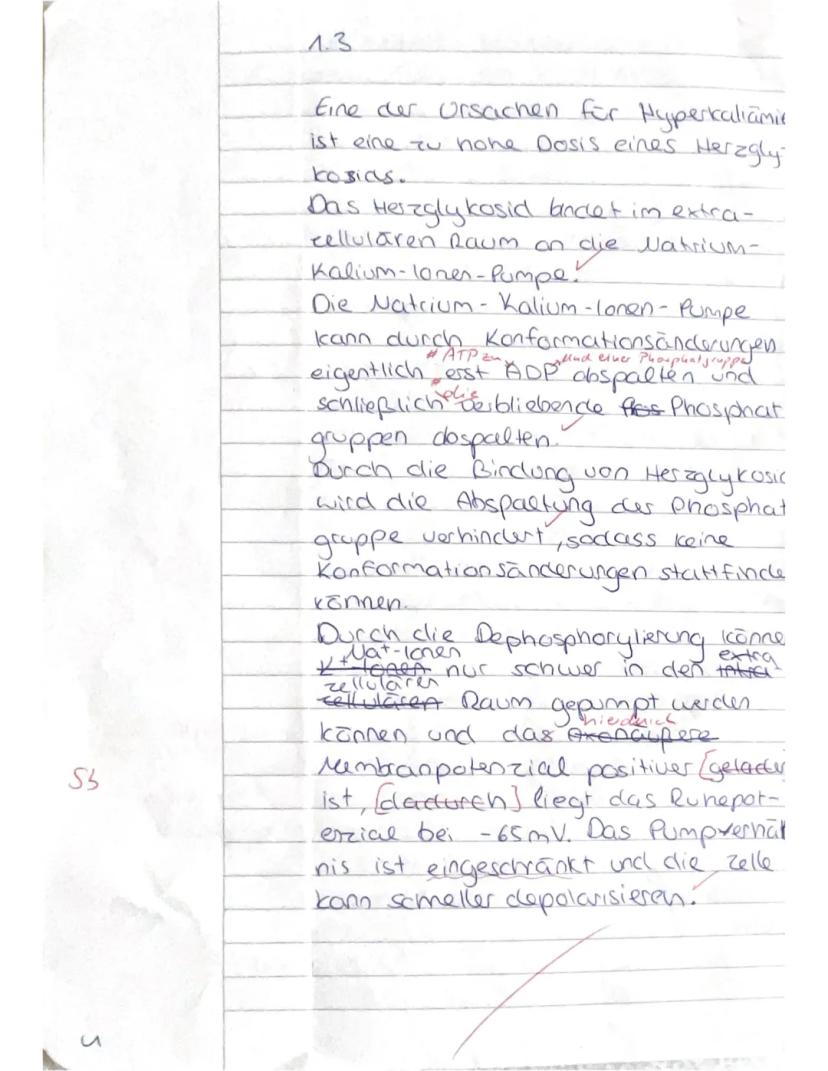 1.3
Eine der Ursachen für Hyperkaliämie
ist eine zu hohe Dosis eines Herzgly-
kosids.
Das Herzglykosid bindet im extra-
zellulären Raum an die Natrium-
Kalium-Ionen-Pumpe.
Die Natrium-Kalium-Ionen-Pumpe
kann durch Konformationsänderungen
# ATP zu und einer Phosphatgruppe
eigentlich erst ADP abspalten und
# die
schließlich verbliebende Phosphat
gruppen abspalten.
Durch die Bindung von Herzglykosid
wird die Abspaltung der Phosphat
gruppe verhindert, sodass keine
Konformationsänderungen stattfinde
können.
Durch die Dephosphorylierung könne
Na+-Ionen extra
K+-Ionen nur schwer in den intra
zellulären
zellulären Raum gepumpt werden
hierdurch
können und das
Membranpotenzial positiver [gelade
ist, [dadurch] liegt das Ruhepot-
enzial bei -65mV. Das Pumpverhäl
nis ist eingeschränkt und die Zelle
kann schneller depolarisieren.
Sb
4